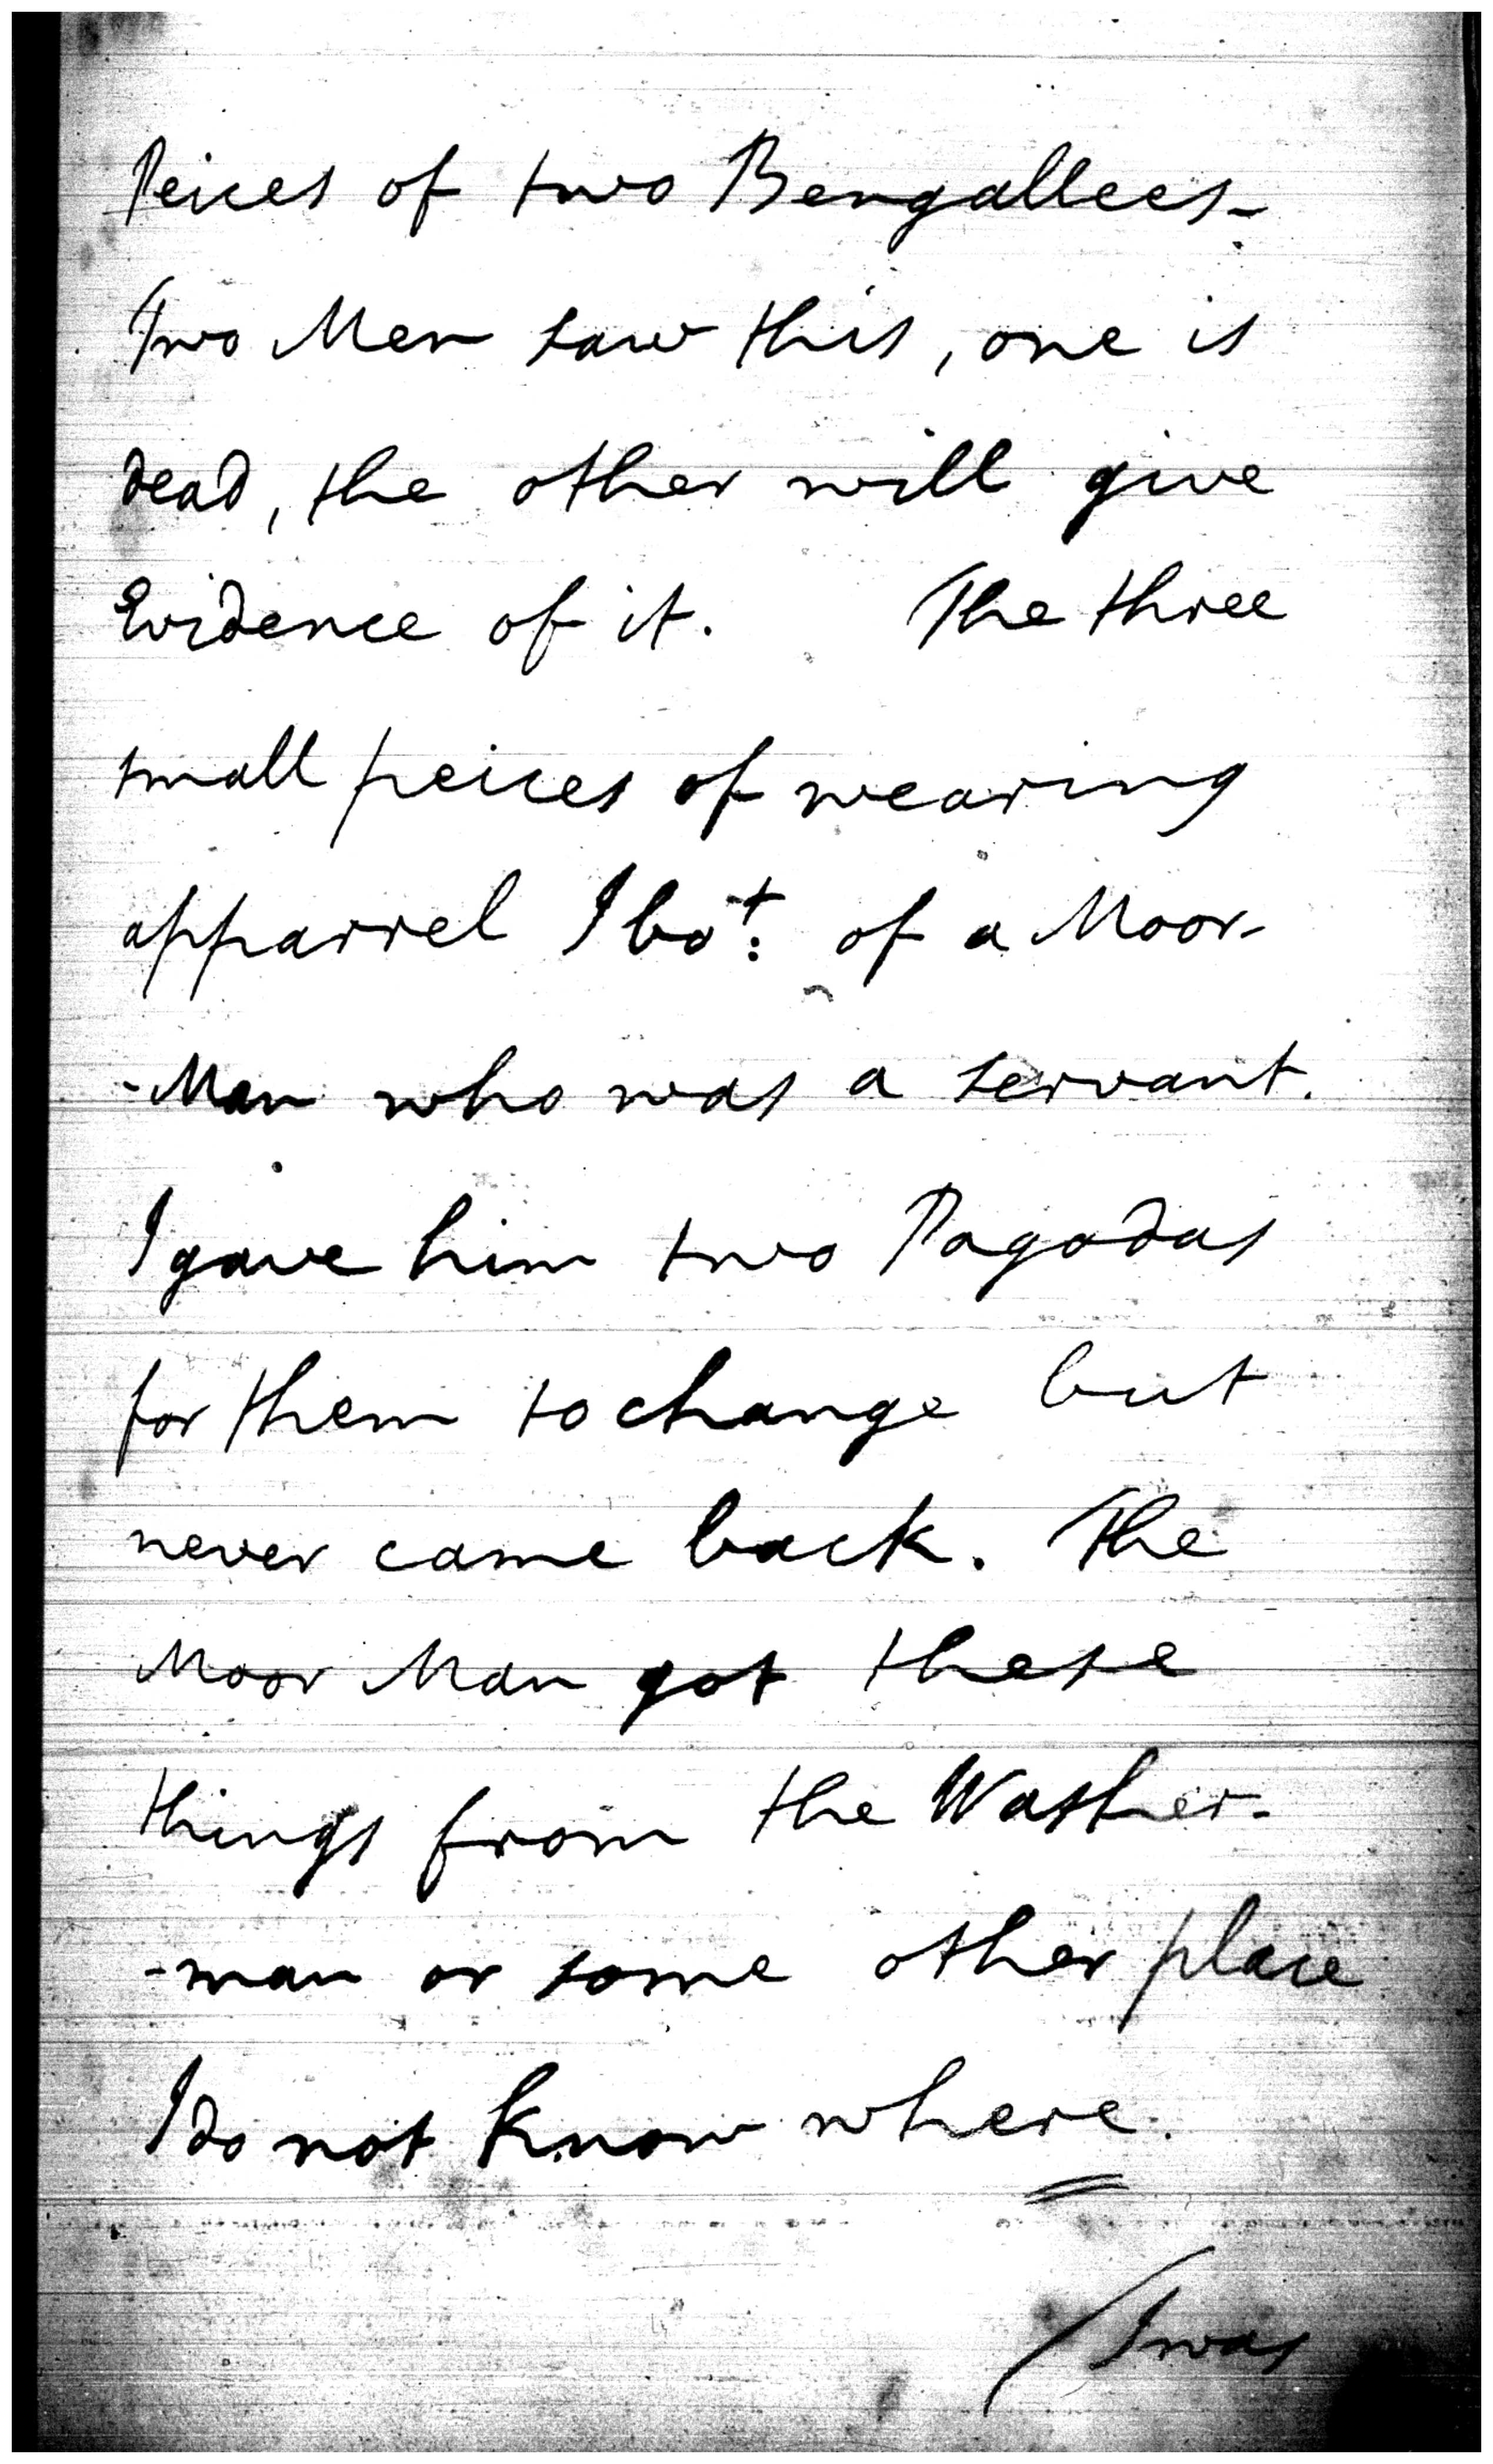 Peices of two Bengallees-
Two Men saw this, one is
dead, the other will give
Evidence of it. The three
small peices of wearing
apparrel I bot: of a Moor-
-Man who was a servant.
I gave him two Pagodas
for them to change but
never came back. The
Moor Man got these
things from the Washer-
-man or some other place
I do not know where.
/I was